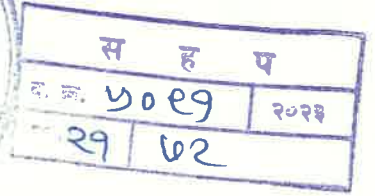 स ह प
द. क्र. ५०९१ २०२३
२१ ७२